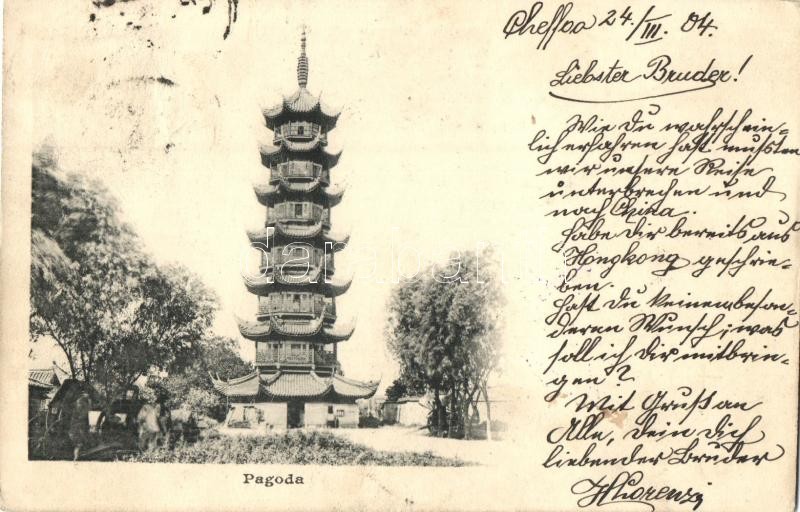 Cheffoo 24./III. 04.
Liebster Bruder!
Wie Du wahrschein=
lich erfahren hast mussten
wir unsere Reise
unterbrechen und
nach China.
Habe Dir bereits aus
Hongkong geschrie=
ben.
Hast Du keinen beson=
deren Wunsch, was
soll ich Dir mitbrin=
gen?
Mit Gruß an
Alle, Dein Dich
liebender Bruder
Pagoda
darabanth.com